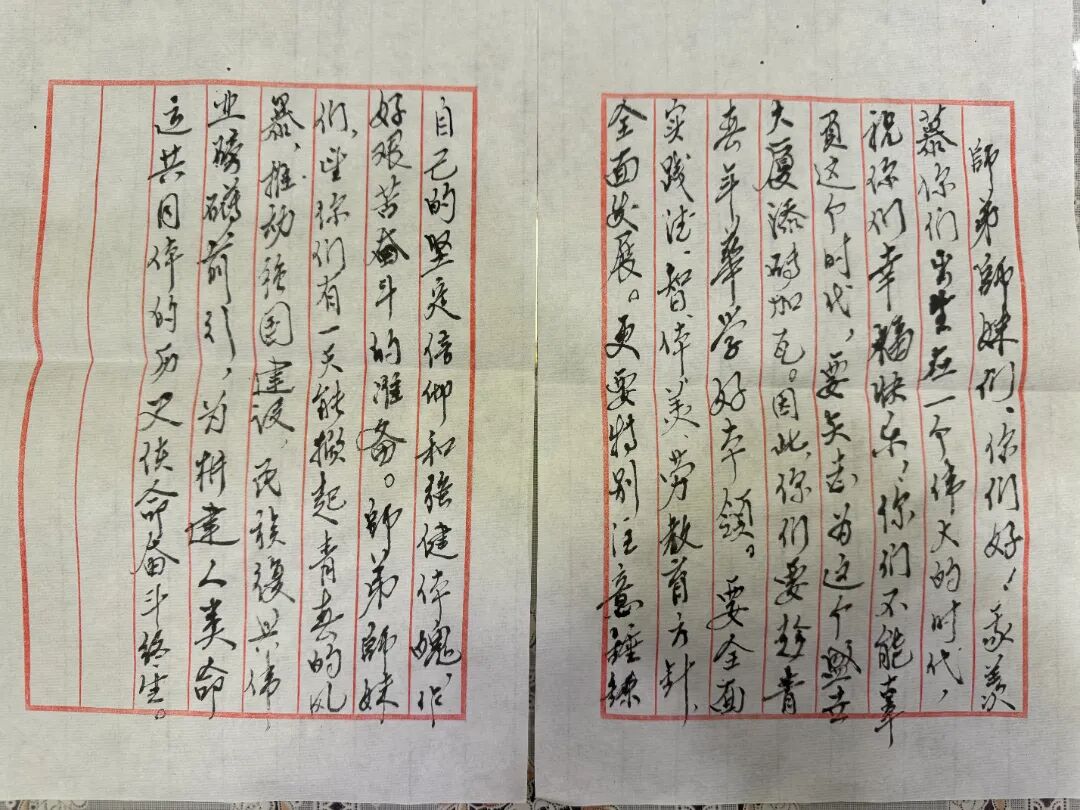 師弟師妹们、你们好！我羡
慕你们出生在一个伟大的时代，
祝你们幸福快乐，你们不能辜
负这个时代，要矢志为这个盛世
大厦添砖加瓦。因此，你们要趁青
春年华学好本领。要全面
实践德、智、体、美、劳教育方针、
全面发展。更要特别注意錘鍊
自己的坚定信仰和强健体魄，作
好艰苦奋斗的准备。師弟師妹
们，望你们有一天能掀起青春的风
暴，推动强国建设，民族復兴伟
业磅礴前行，为构建人类命
运共同体的历史使命奋斗终生。